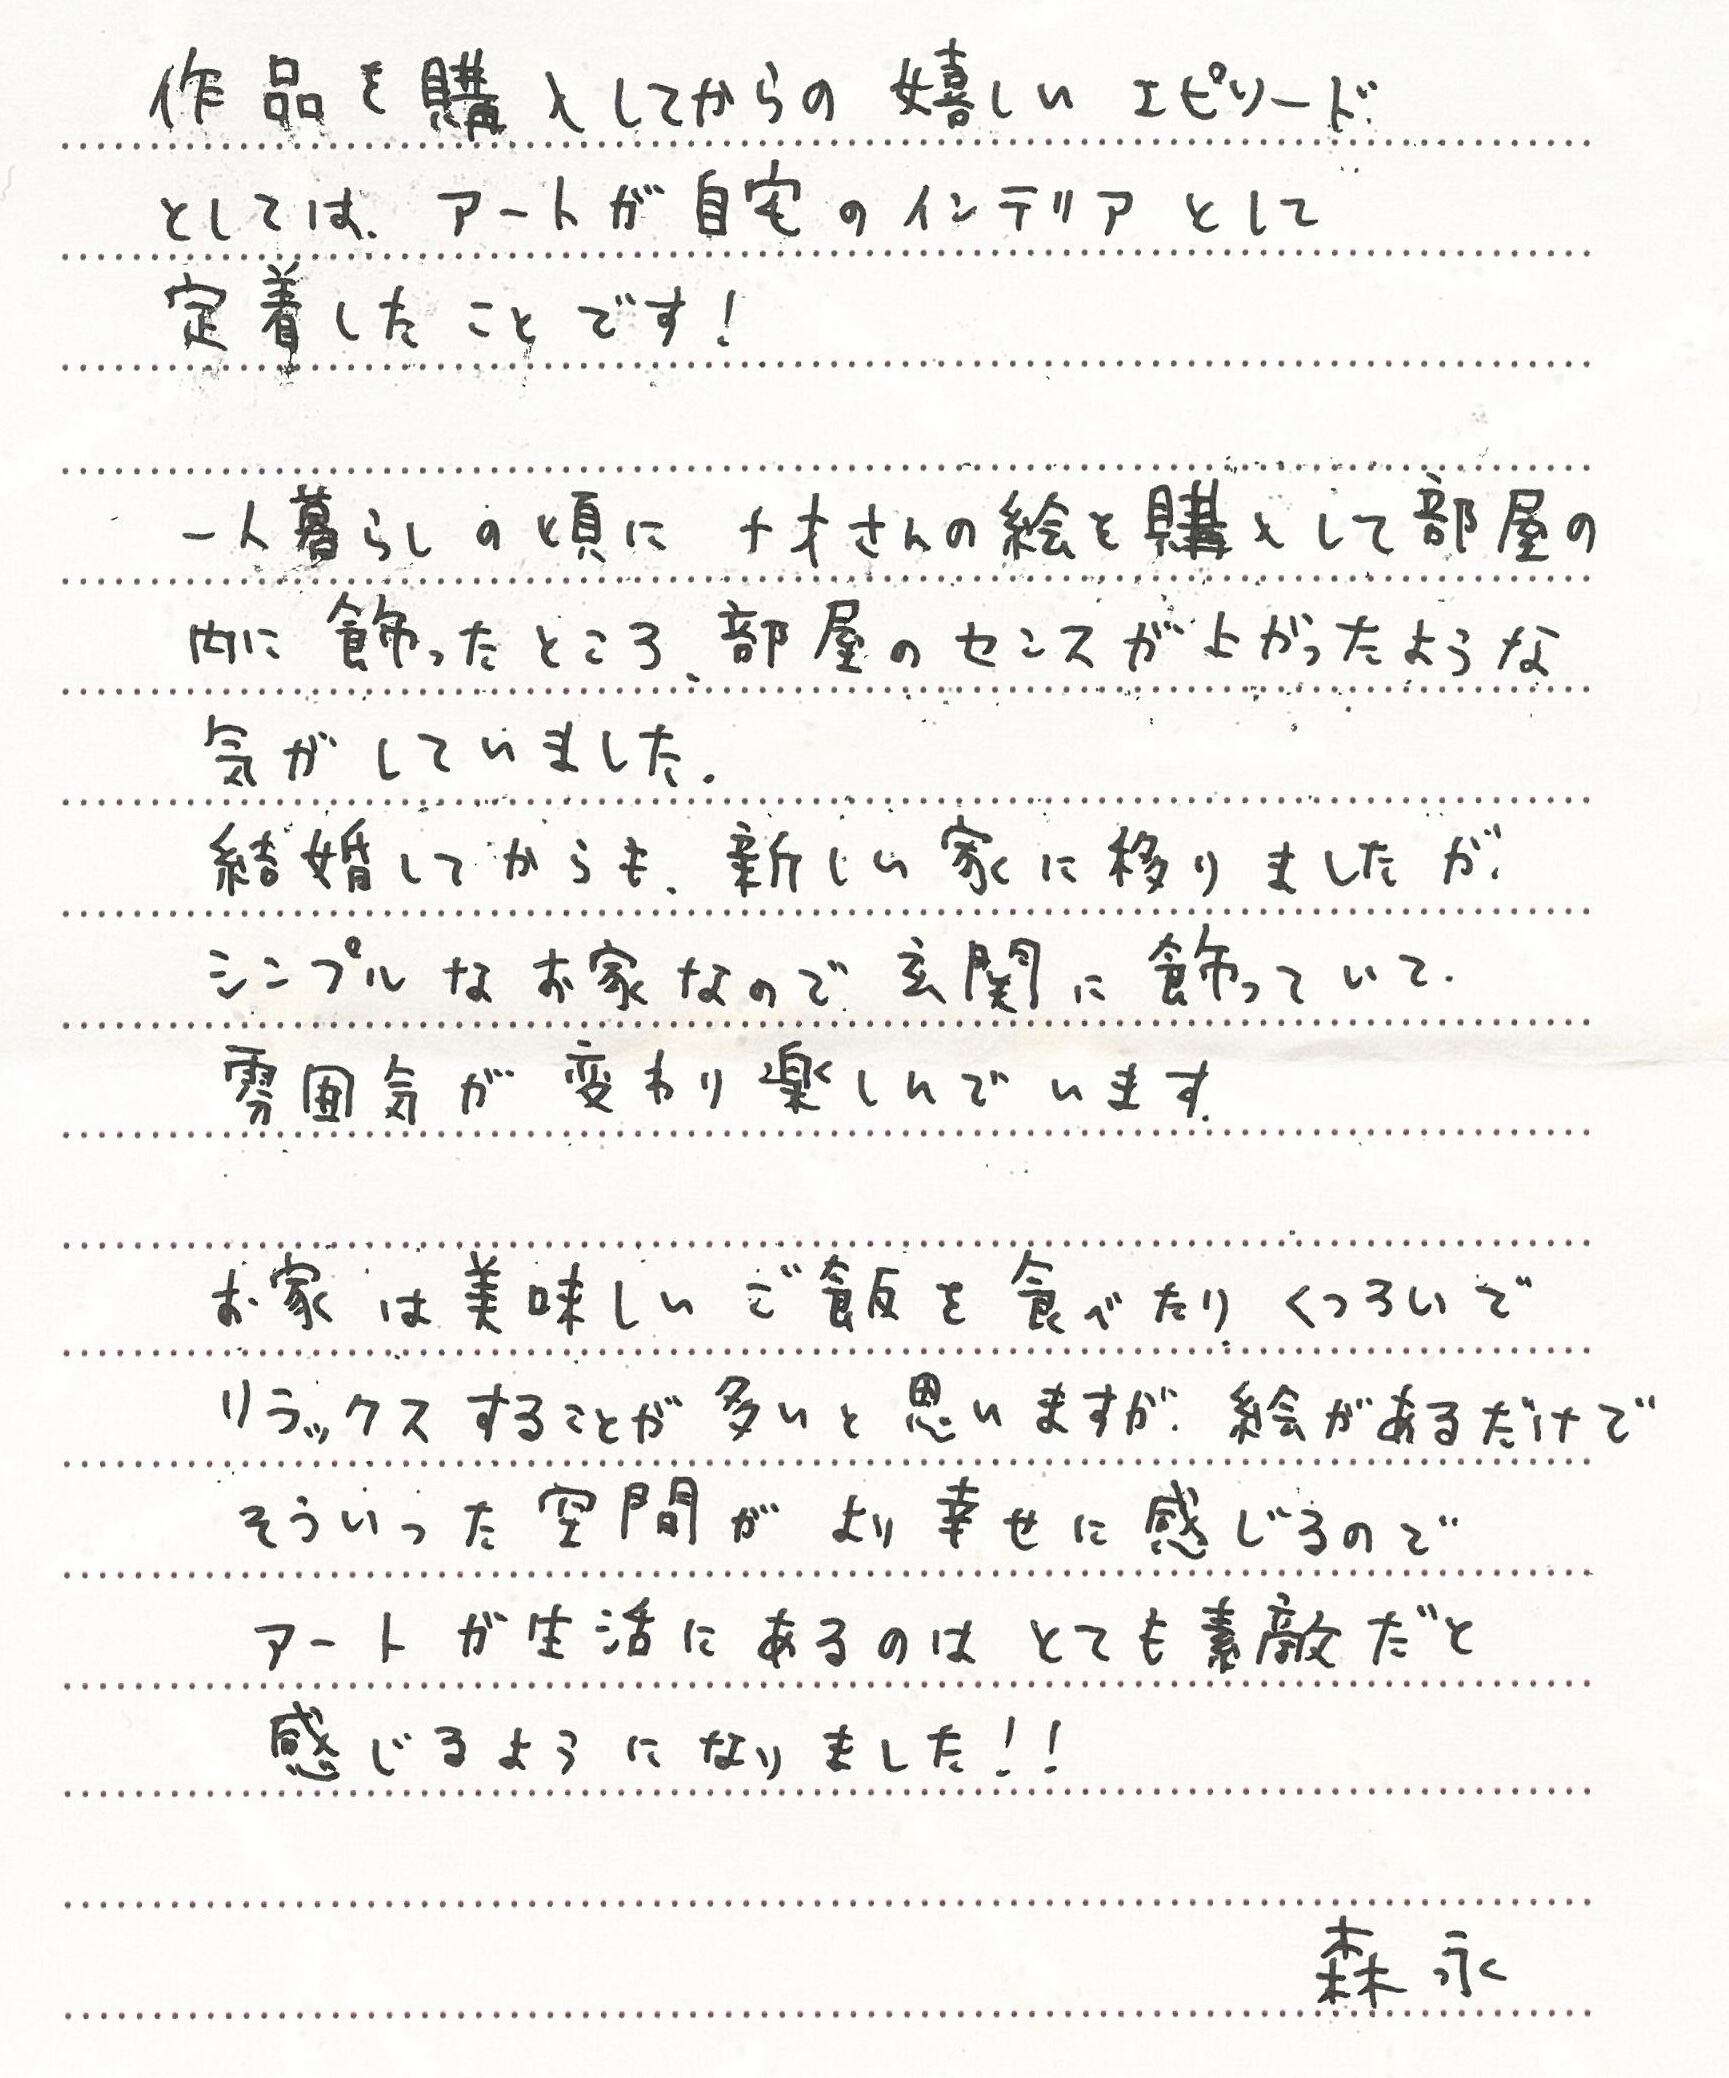 作品を購入してからの嬉しいエピソード
としては、アートが自宅のインテリアとして
定着したことです！
一人暮らしの頃に ナオさんの絵を購入して部屋の
内に飾ったところ、部屋のセンスが上がったような
気がしていました。
結婚してからも、新しい家に移りましたが、
シンプルなお家なので玄関に飾っていて、
雰囲気が変わり楽しんでいます。
お家は美味しいご飯を食べたりくつろいで
リラックスすることが多いと思いますが、絵があるだけで
そういった空間がより幸せに感じるので
アートが生活にあるのはとても素敵だと
感じるようになりました！！
森永